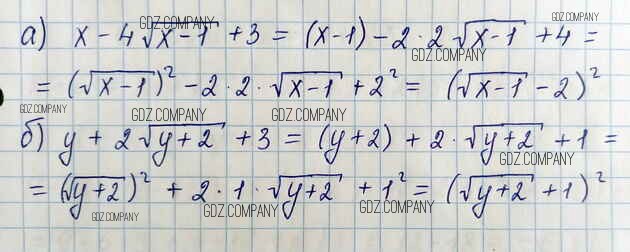 а) x - 4√(x-1) + 3 = (x-1) - 2·2√(x-1) + 4 =
= (√(x-1))² - 2·2·√(x-1) + 2² = (√(x-1) - 2)²
б) y + 2√(y+2) + 3 = (y+2) + 2·√(y+2) + 1 =
= (√(y+2))² + 2·1·√(y+2) + 1² = (√(y+2) + 1)²
GDZ.COMPANY
GDZ.COMPANY
GDZ.COMPANY
GDZ.COMPANY
GDZ.COMPANY
GDZ.COMPANY
GDZ.COMPANY
GDZ.COMPANY
GDZ.COMPANY
GDZ.COMPANY